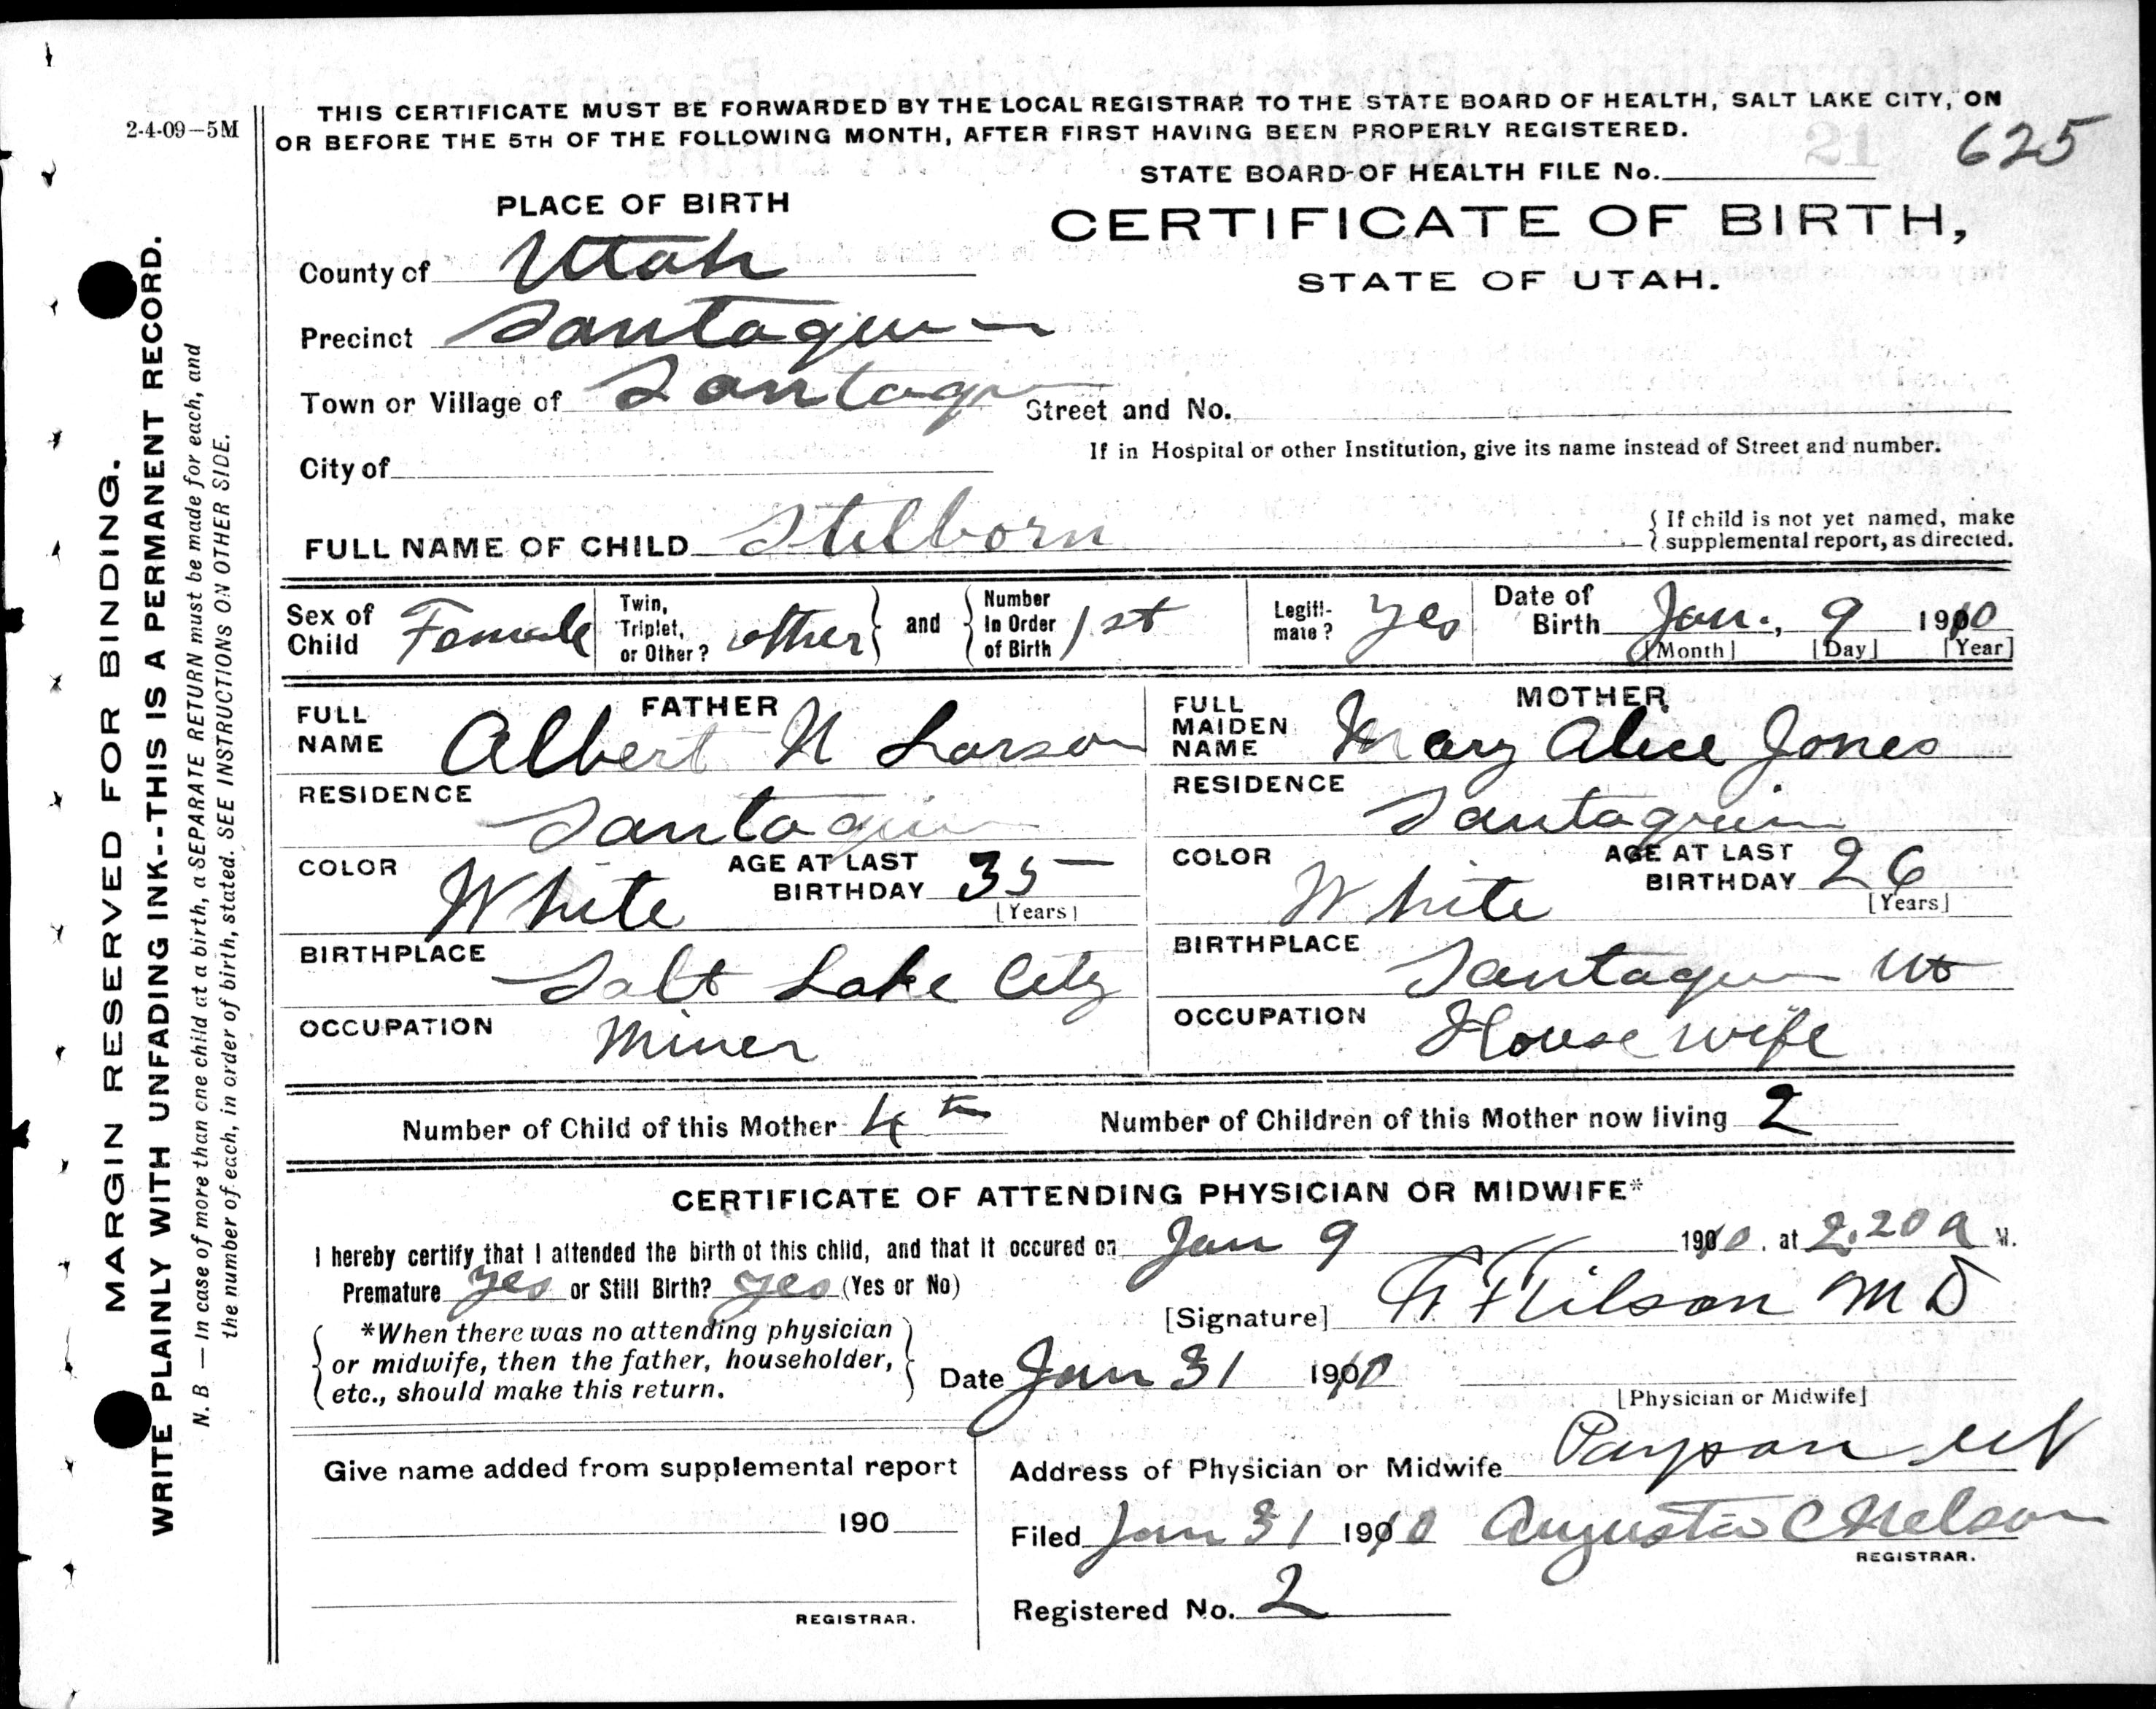 THIS CERTIFICATE MUST BE FORWARDED BY THE LOCAL REGISTRAR TO THE STATE BOARD OF HEALTH, SALT LAKE CITY, ON
2-4-09-5M
OR BEFORE THE 5TH OF THE FOLLOWING MONTH, AFTER FIRST HAVING BEEN PROPERLY REGISTERED.
625
21
STATE BOARD OF HEALTH FILE No.
PLACE OF BIRTH
CERTIFICATE OF BIRTH,
STATE OF UTAH.
County of Utah
Precinct Santaquin
Town or Village of Santaq Street and No.
If in Hospital or other Institution, give its name instead of Street and number.
City of
FULL NAME OF CHILD Stelborn { If child is not yet named, make supplemental report, as directed.
Sex of Child Female Twin, Triplet, or Other? other } and { Number In Order of Birth 1st Legiti-mate? yes Date of Birth Jan., 9 1910
[Month] [Day] [Year]
FATHER
FULL NAME Albert N Larson
RESIDENCE Santaquin
COLOR White AGE AT LAST BIRTHDAY 35
[Years]
BIRTHPLACE Salt Lake City
OCCUPATION Miner
MOTHER
FULL MAIDEN NAME Mary Alice Jones
RESIDENCE Santaquin
COLOR White AGE AT LAST BIRTHDAY 26
[Years]
BIRTHPLACE Santaquin Ut
OCCUPATION House wife
Number of Child of this Mother 4th Number of Children of this Mother now living 2
CERTIFICATE OF ATTENDING PHYSICIAN OR MIDWIFE*
I hereby certify that I attended the birth of this child, and that it occured on Jan 9 1910, at 2.20 a M.
Premature yes or Still Birth? yes (Yes or No)
[Signature] M D
*When there was no attending physician
or midwife, then the father, householder,
etc., should make this return.
Date Jan 31 1910
[Physician or Midwife]
Give name added from supplemental report
190
REGISTRAR.
Address of Physician or Midwife Payson Ut
Filed Jan 31 1910 Augusta C Nelson
REGISTRAR.
Registered No. 2
MARGIN RESERVED FOR BINDING.
WRITE PLAINLY WITH UNFADING INK--THIS IS A PERMANENT RECORD.
N. B — In case of more than one child at a birth, a SEPARATE RETURN must be made for each, and
the number of each, in order of birth, stated. SEE INSTRUCTIONS ON OTHER SIDE.